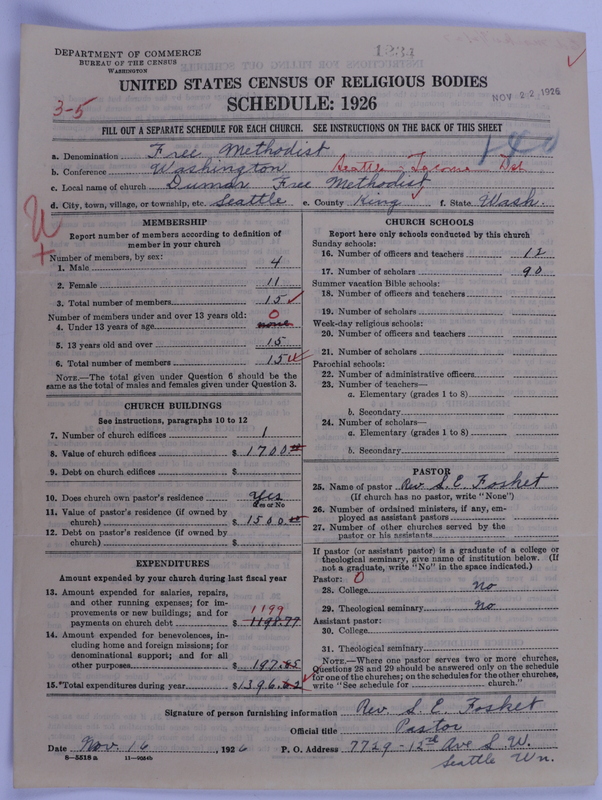 1231
DEPARTMENT OF COMMERCE
BUREAU OF THE CENSUS
WASHINGTON
UNITED STATES CENSUS OF RELIGIOUS BODIES
SCHEDULE: 1926
NOV 22 1926
3-5
FILL OUT A SEPARATE SCHEDULE FOR EACH CHURCH. SEE INSTRUCTIONS ON THE BACK OF THIS SHEET
a. Denomination Free Methodist
b. Conference Washington Seattle - Tacoma Dst
c. Local name of church Dumar Free Methodist
d. City, town, village, or township, etc. Seattle e. County King f. State Wash.
MEMBERSHIP
Report number of members according to definition of
member in your church
Number of members, by sex:
1. Male 4
2. Female 11
3. Total number of members 15
Number of members under and over 13 years old: 0
4. Under 13 years of age none
5. 13 years old and over 15
6. Total number of members 15
NOTE.—The total given under Question 6 should be the
same as the total of males and females given under Question 3.
CHURCH BUILDINGS
See instructions, paragraphs 10 to 12
7. Number of church edifices 1
8. Value of church edifices $ 1700
9. Debt on church edifices $
10. Does church own pastor's residence yes
Yes or No
11. Value of pastor's residence (if owned by
church) $ 1500
12. Debt on pastor's residence (if owned by
church) $
EXPENDITURES
Amount expended by your church during last fiscal year
13. Amount expended for salaries, repairs,
and other running expenses; for im-
provements or new buildings; and for 1199
payments on church debt $ 1198.77
14. Amount expended for benevolences, in-
cluding home and foreign missions; for
denominational support; and for all
other purposes $ 197.85
15. Total expenditures during year $ 1396.62
CHURCH SCHOOLS
Report here only schools conducted by this church
Sunday schools:
16. Number of officers and teachers 12
17. Number of scholars 90
Summer vacation Bible schools:
18. Number of officers and teachers
19. Number of scholars
Week-day religious schools:
20. Number of officers and teachers
21. Number of scholars
Parochial schools:
22. Number of administrative officers
23. Number of teachers—
a. Elementary (grades 1 to 8)
b. Secondary
24. Number of scholars—
a. Elementary (grades 1 to 8)
b. Secondary
PASTOR
25. Name of pastor Rev. S. E. Fosket
(If church has no pastor, write "None")
26. Number of ordained ministers, if any, em-
ployed as assistant pastors
27. Number of other churches served by the
pastor or his assistants
If pastor (or assistant pastor) is a graduate of a college or
theological seminary, give name of institution below. (If
not a graduate, write "No" in the space indicated.)
Pastor: 0
28. College no
29. Theological seminary no
Assistant pastor:
30. College
31. Theological seminary
NOTE.—Where one pastor serves two or more churches,
Questions 28 and 29 should be answered only on the schedule
for one of the churches; on the schedules for the other churches,
write "See schedule for church."
Signature of person furnishing information Rev. S. E. Fosket
Official title Pastor
Date Nov. 16, 1926 P. O. Address 7729 - 12th Ave S. W.
Seattle Wn.
8-5518 a